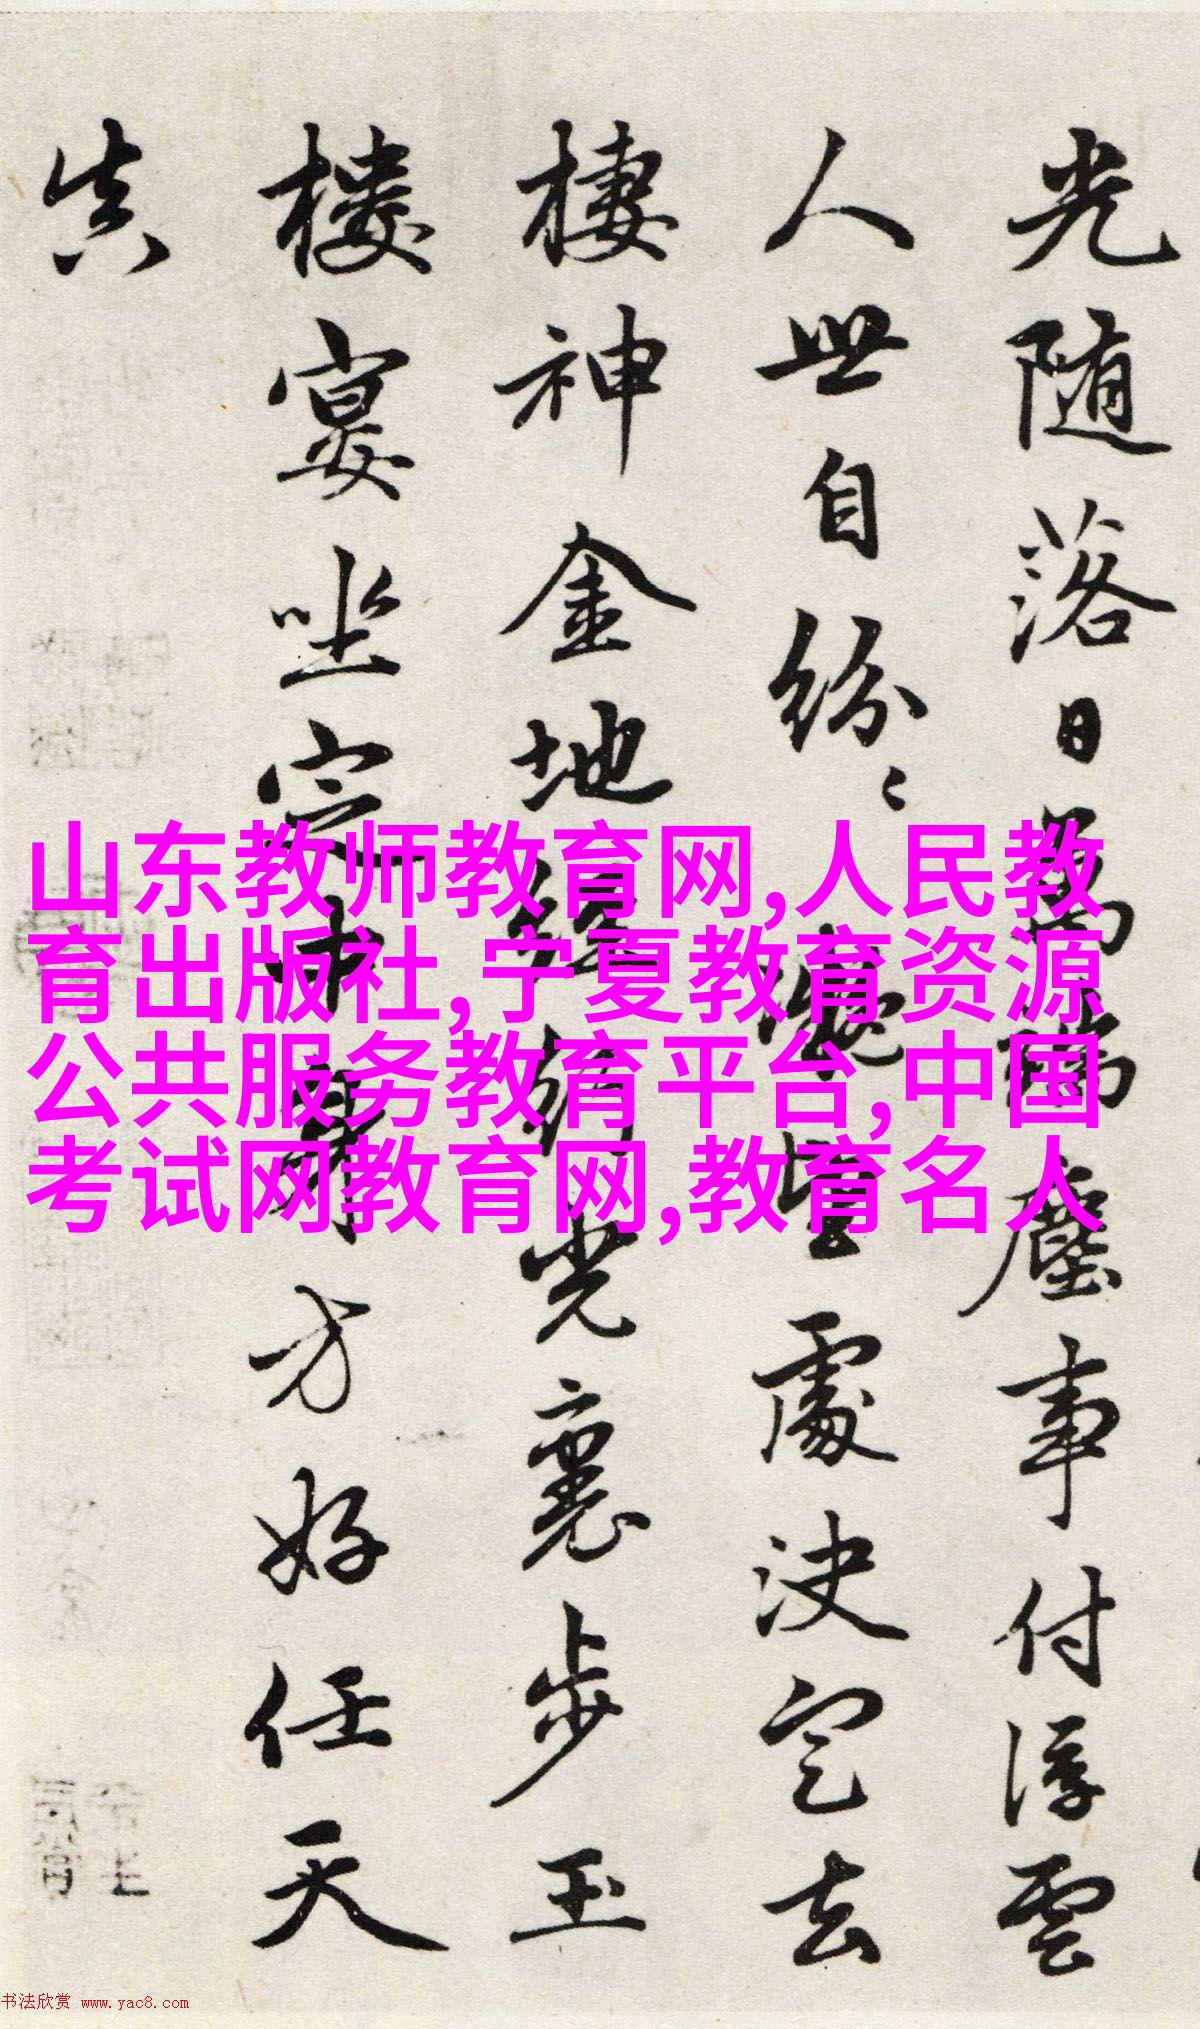 光随落日萬端塵事付浮雲
人世自紛〻望處決定去
棲神金地經行光裏步玉
樓宴坐定中身方好任天
真
山东教师教育网,人民教
育出版社,宁夏教育资源
公共服务教育平台,中国
考试网教育网,教育名人
书法欣赏 www.yac8.com